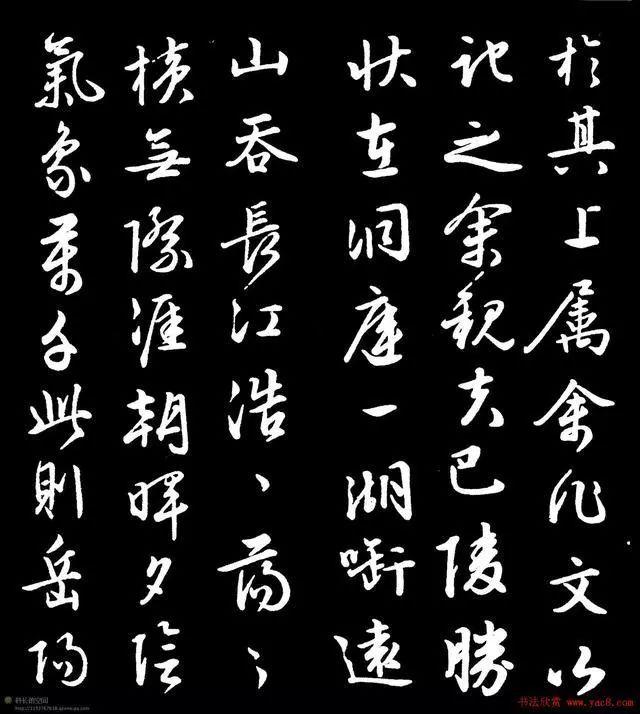 於其上属余作文以
記之余觀夫巴陵勝
狀在洞庭一湖啣遠
山吞長江浩〻蕩〻
橫無際涯朝暉夕陰
氣象萬千此則岳陽
书法欣赏 www.yac8.com